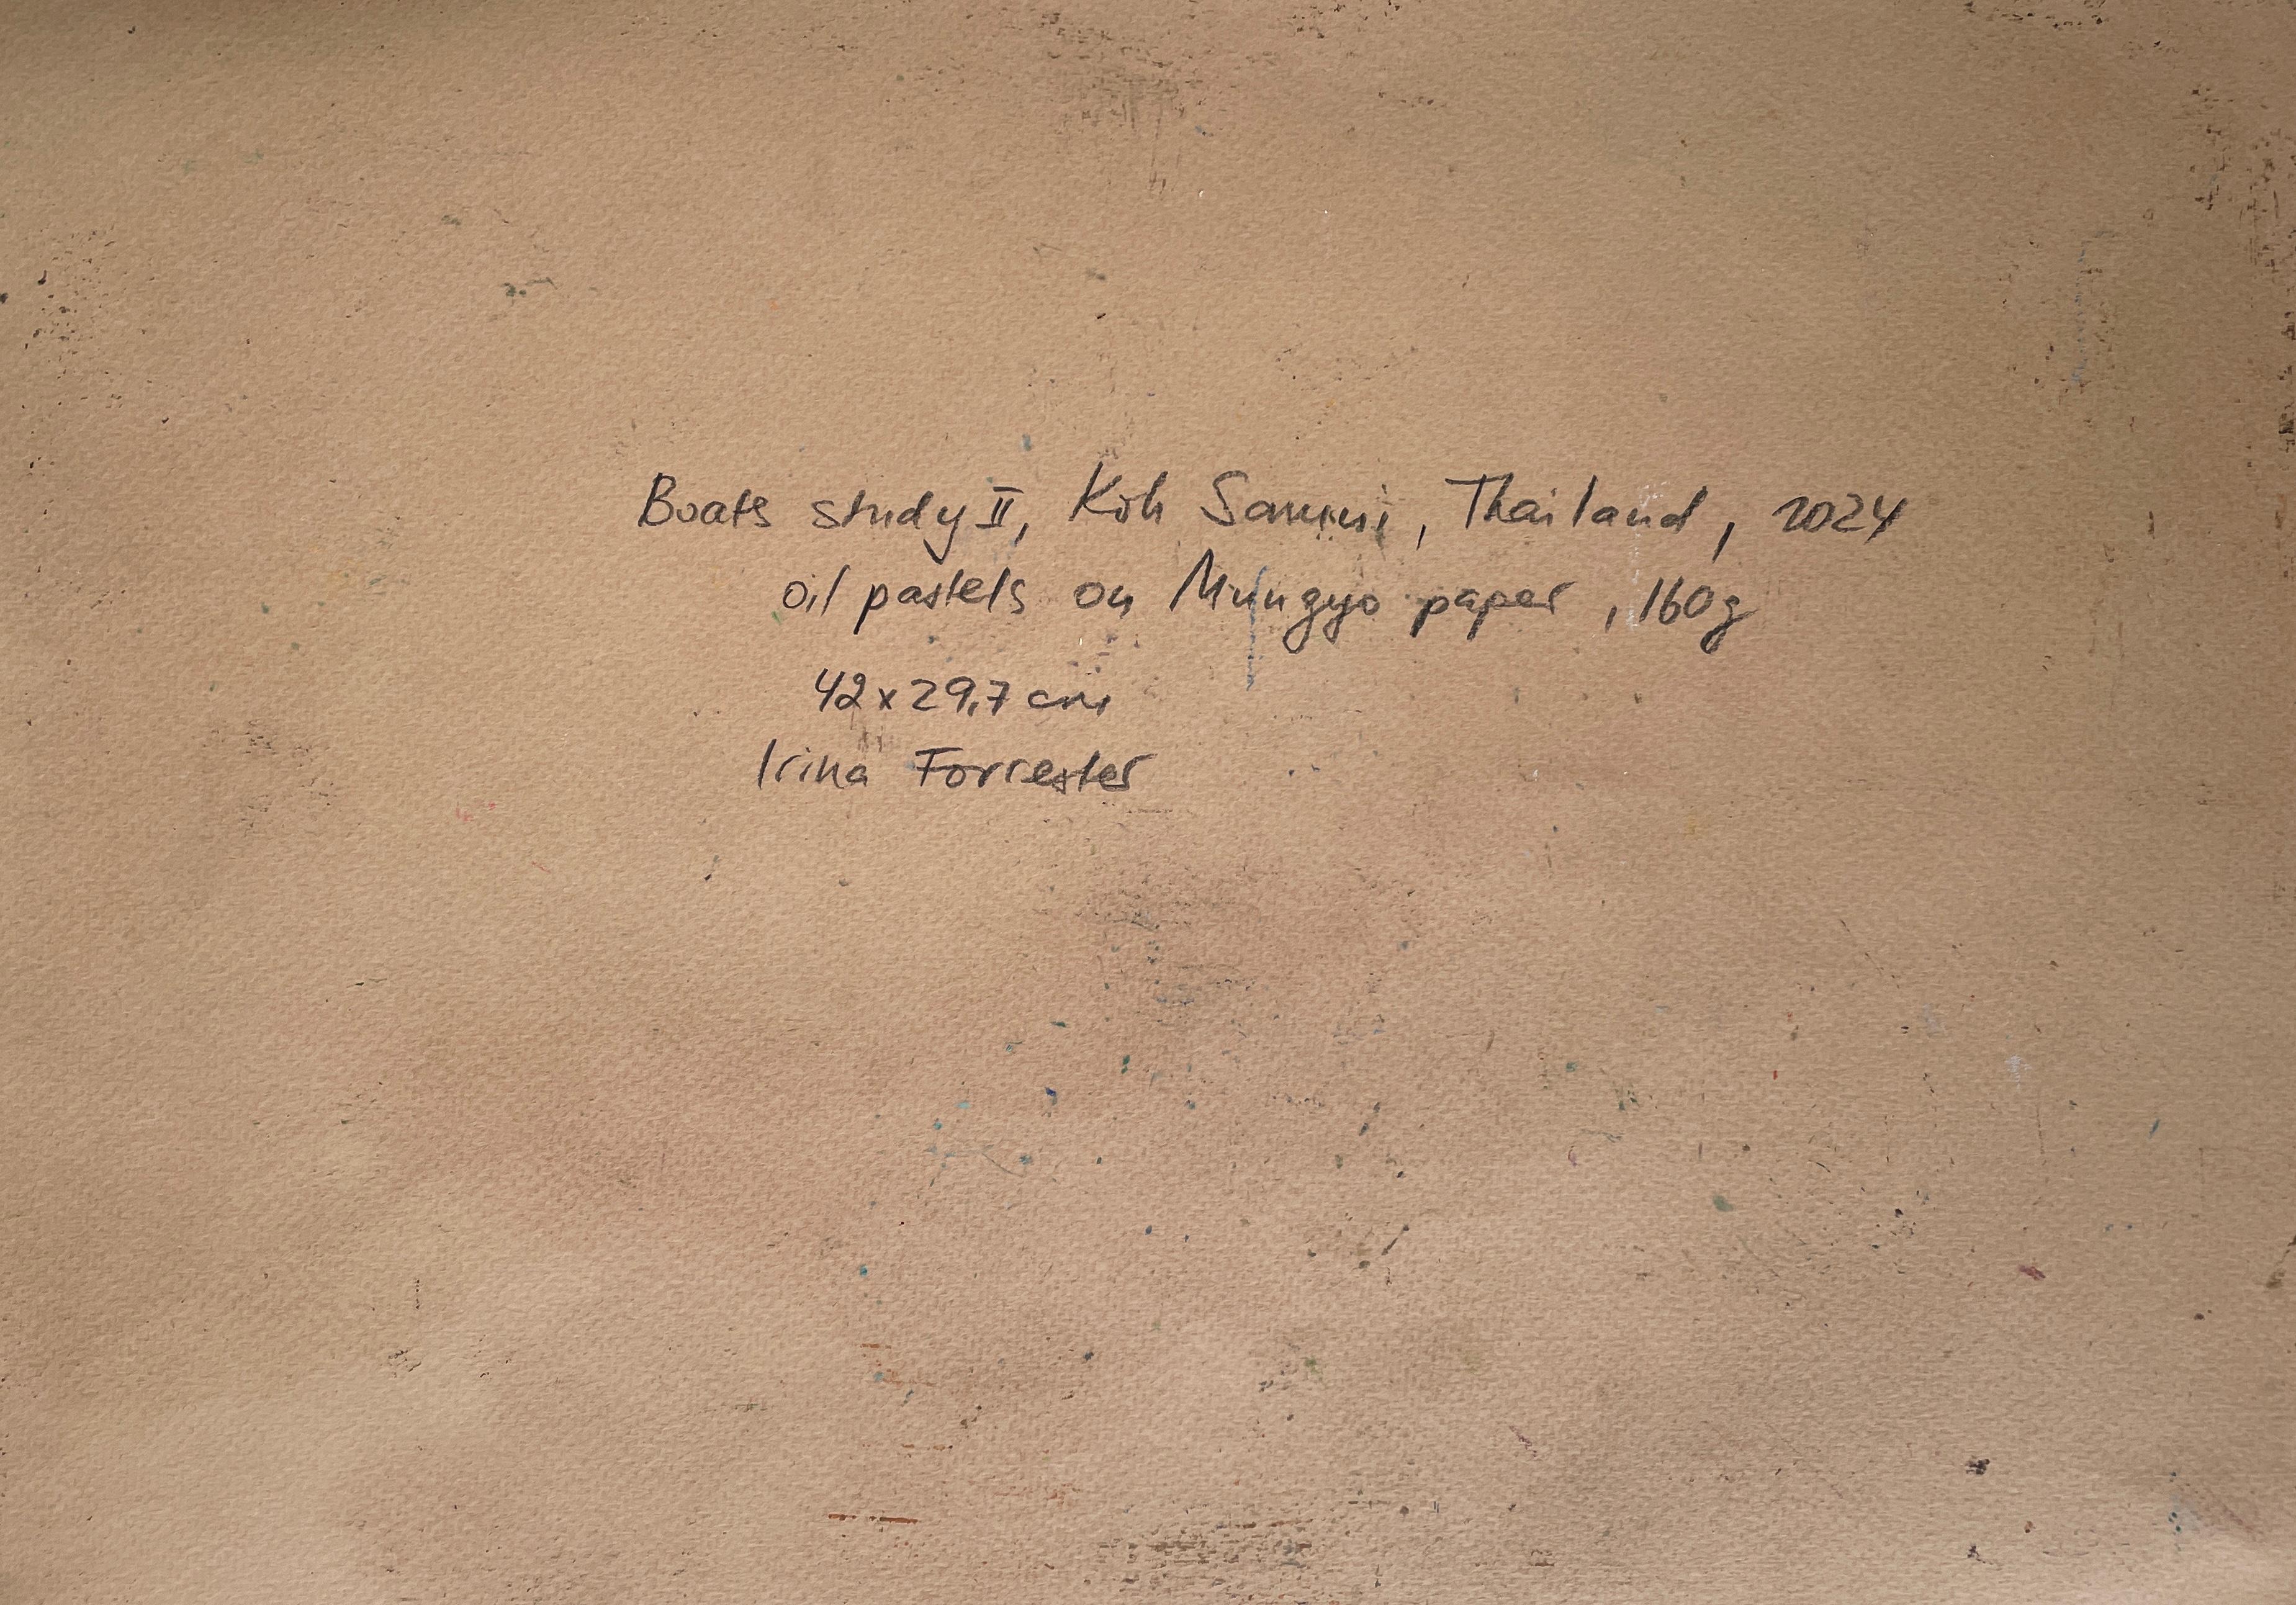 Boats study II, Koh Samui, Thailand, 2024
oil pastels on Mungyo paper, 160g
42x29,7 cm
Irina Forrester